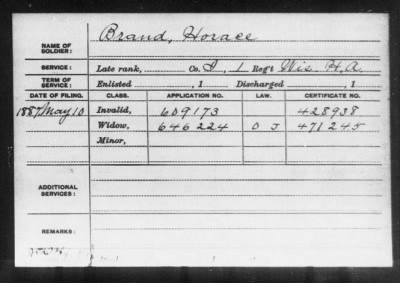 NAME OF SOLDIER: Brand, Horace
SERVICE: Late rank, Co. I, 1 Reg't Wis. H.A.
TERM OF SERVICE: Enlisted , 1 Discharged , 1
DATE OF FILING. CLASS. APPLICATION NO. LAW. CERTIFICATE NO.
1887 May 10 Invalid, 609173 428938
Widow, 646224 O J 471245
Minor,
ADDITIONAL SERVICES:
REMARKS: